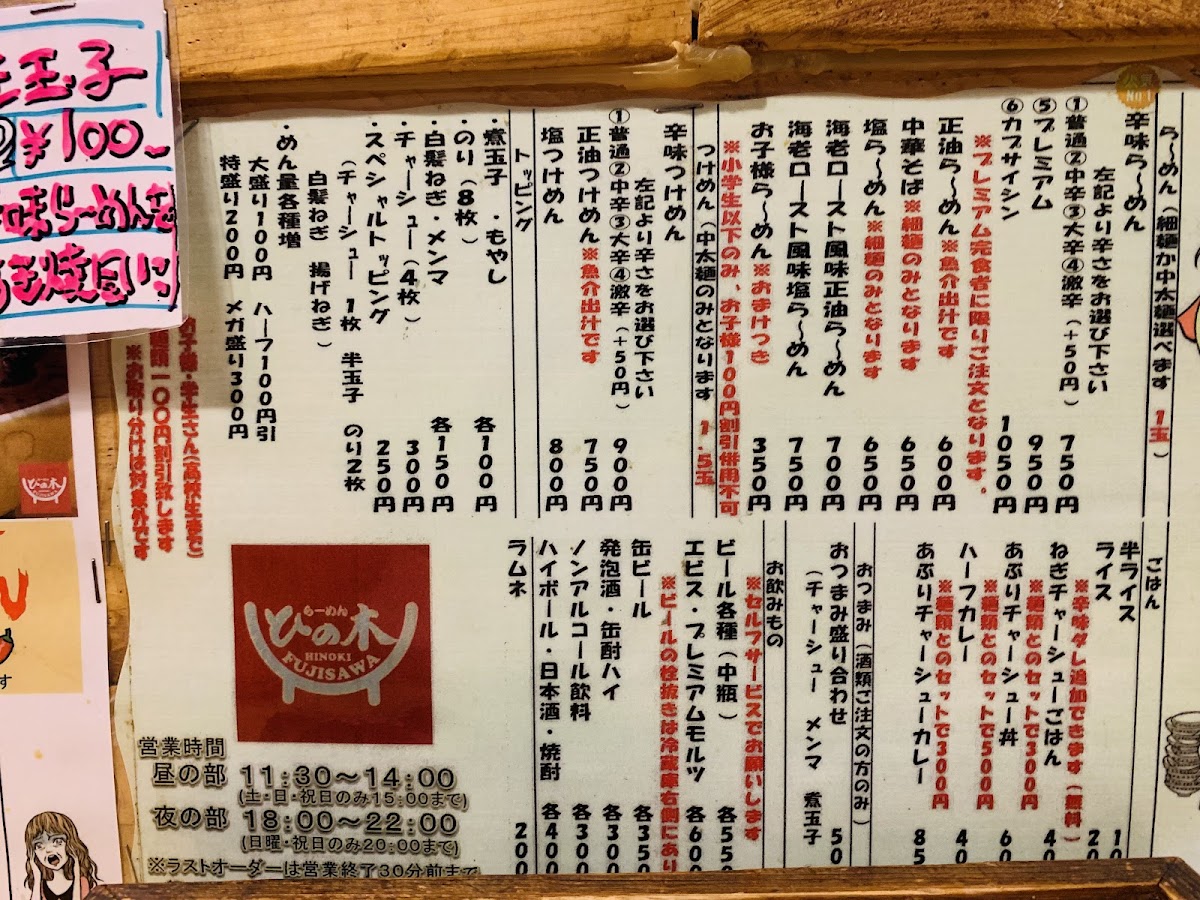 人気
No.1
ら〜めん（細麺か中太麺選べます 1玉）
辛味ら〜めん
左記より辛さをお選び下さい
①普通②中辛③大辛④激辛（＋50円） 750円
⑤プレミアム 950円
⑥カプサイシン 1050円
※プレミアム完食者に限りご注文となります。
正油ら〜めん※魚介出汁です 600円
中華そば※細麺のみとなります 650円
塩ら〜めん※細麺のみとなります 650円
海老ロースト風味正油ら〜めん 700円
海老ロースト風味塩ら〜めん 750円
お子様ら〜めん※おまけつき 350円
※小学生以下のみ、お子様100円割引併用不可
つけめん（中太麺のみとなります 1.5玉
辛味つけめん
左記より辛さをお選び下さい
①普通②中辛③大辛④激辛（＋50円） 900円
正油つけめん※魚介出汁です 750円
塩つけめん 800円
トッピング
・煮玉子 ・もやし 各100円
・のり（8枚）
・白髪ねぎ・メンマ 各150円
・チャーシュー（4枚） 300円
・スペシャルトッピング 250円
（チャーシュー 1枚 半玉子 のり2枚
白髪ねぎ 揚げねぎ）
・めん量各種増
大盛り100円 ハーフ100円引
特盛り200円 メガ盛り300円
学生さん（高校生まで）
麺類一〇〇円割引致します
※お取り分けは対象外です
ごはん
半ライス
ライス
※辛味ダレ追加できます（無料）
ねぎチャーシューごはん
※麺類とのセットで300円
あぶりチャーシュー丼
※麺類とのセットで500円
ハーフカレー
※麺類とのセットで300円
あぶりチャーシューカレー
おつまみ（酒類ご注文の方のみ）
おつまみ盛り合わせ
（チャーシュー メンマ 煮玉子
お飲みもの
※セルフサービスでお願いします
ビール各種（中瓶）
エビス・プレミアムモルツ
※ビールの栓抜きは冷蔵庫右側にあり
缶ビール
発泡酒・缶酎ハイ
ノンアルコール飲料 各300
ハイボール・日本酒・焼酎 各400
ラムネ 200
らーめん
ひの木
HINOKI
FUJISAWA
営業時間
昼の部 11:30〜14:00
(土・日・祝日のみ15:00まで)
夜の部 18:00〜22:00
(日曜・祝日のみ20:00まで)
※ラストオーダーは営業終了30分前まで
玉子
¥100
味ら〜めんを
ひの木